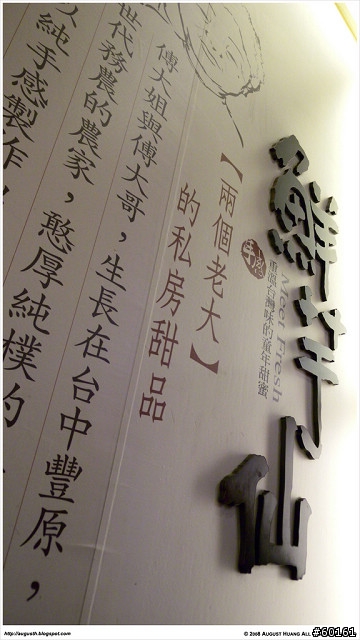 鮮芋仙
Meet Fresh
手感
重溫台灣味的童年甜蜜
【兩個老大】
的私房甜品
傅大姐與傅大哥，生長在台中豐原，
世代務農的農家，憨厚純樸的
純手感製作
http://augusth.blogspot.com
© 2008 AUGUST HUANG ALL
#60161